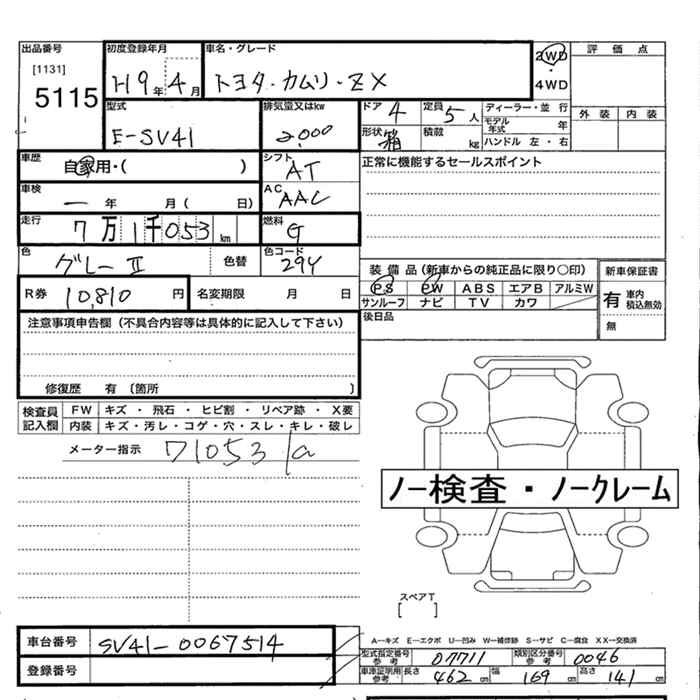 出品番号
[1131]
5115
初度登録年月
H9年4月
車名・グレード
トヨタ・カムリ・ZX
2WD
・
4WD
評価点
外装 内装
型式
E-SV41
排気量又はkw
2,000
ドア 4
定員 5人
ディーラー・並行
形状 箱
積載 kg
モデル年式 年
ハンドル 左・右
車歴
自家用・( )
シフト
AT
正常に機能するセールスポイント
車検
ー年 月( 日)
AC
AAC
走行
7万1千053km
燃料
G
色
グレーⅡ
色替
色コード
294
装備品(新車からの純正品に限り○印)
PS PW ABS エアB アルミW
サンルーフ ナビ TV カワ
新車保証書
有 車内積込無効
無
R券 10,810円
名変期限 月 日
後日品
注意事項申告欄(不具合内容等は具体的に記入して下さい)
修復歴 有 〔箇所 〕
検査員記入欄
FW キズ・飛石・ヒビ割・リペア跡・X要
内装 キズ・汚レ・コゲ・穴・スレ・キレ・破レ
メーター指示 71053
ノー検査・ノークレーム
スペアT
[ ]
A―キズ E―エクボ U―凹み W―補修跡 S―サビ C―腐食 XX―交換済
車台番号 SV41-0067514
登録番号
型式指定番号参考 07711
類別区分番号参考 0046
車庫証明用参考 長さ 462cm 幅 169cm 高さ 141cm